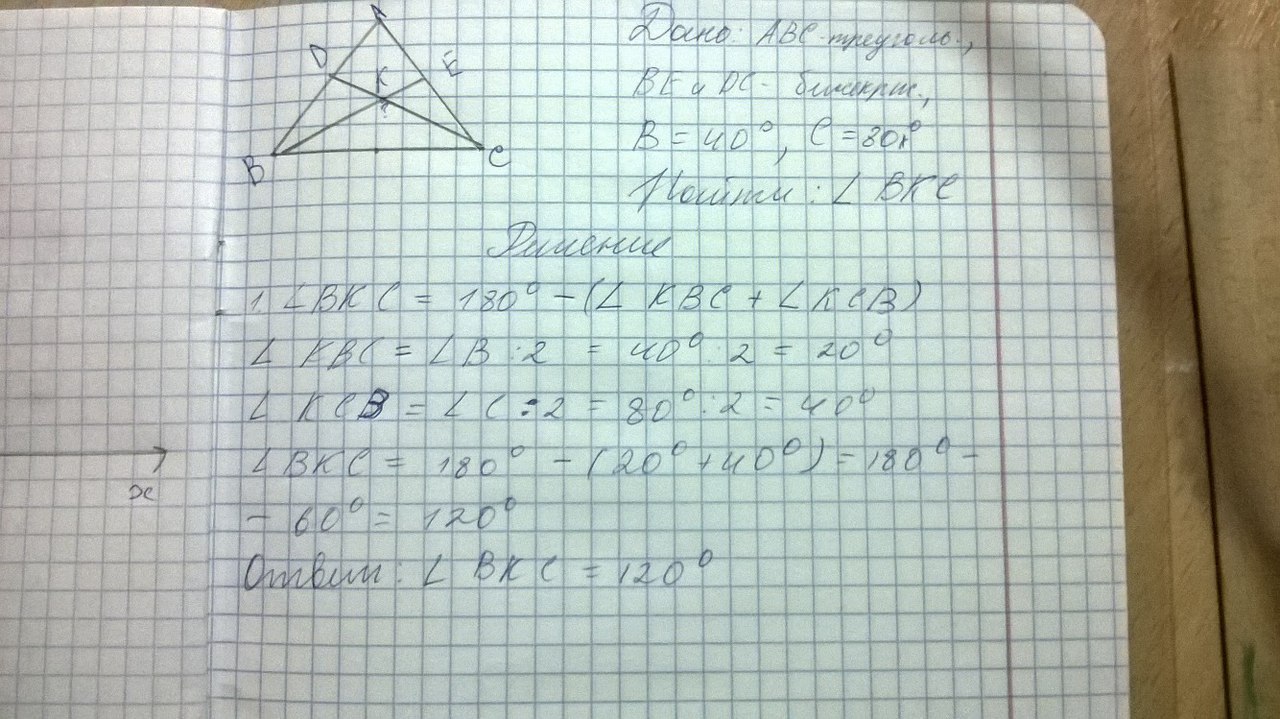 A
D
E
K
B
C
Дано: ABC-треуголь.,
BE и DC - биссектр.,
B = 40°, C = 80°
Найти: ∠ BKC
Решение
1. ∠BKC = 180° - (∠ KBC + ∠KCB)
∠ KBC = ∠B : 2 = 40° : 2 = 20°
∠ KCB = ∠C : 2 = 80° : 2 = 40°
∠BKC = 180° - (20° + 40°) = 180° -
- 60° = 120°
x
Ответ: ∠ BKC = 120°